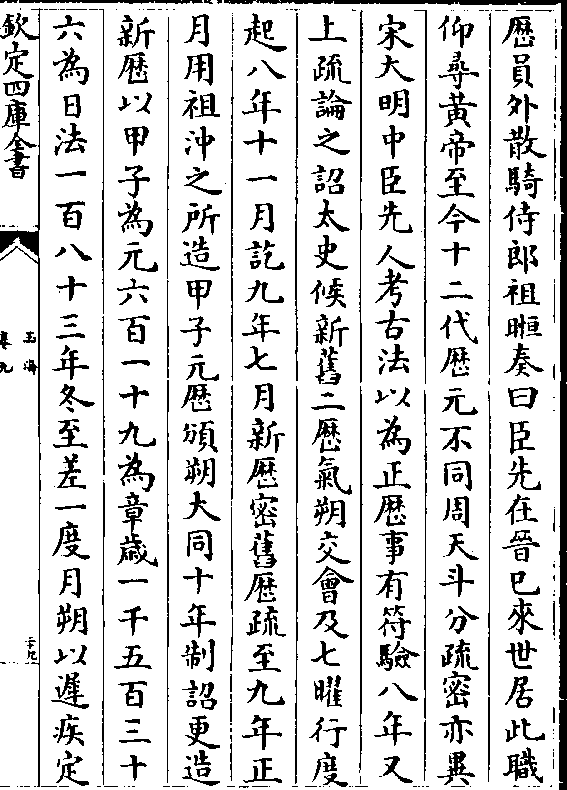 歴員外散騎侍郎祖暅奏曰臣先在晉已來世居此職
仰尋黄帝至今十二代歴元不同周天斗分疏密亦異
宋大明中臣先人考古法以為正歴事有符驗八年又
上疏論之詔太史候新舊二歴氣朔交會及七曜行度
起八年十一月訖九年七月新歴密舊歴疏至九年正
月用祖沖之所造甲子元歴頒朔大同十年制詔更造
新歴以甲子為元六百一十九為章歳一千五百三十
六為日法一百八十三年冬至差一度月朔以遲疾定
欽定四庫全書
玉海
卷九
二十九